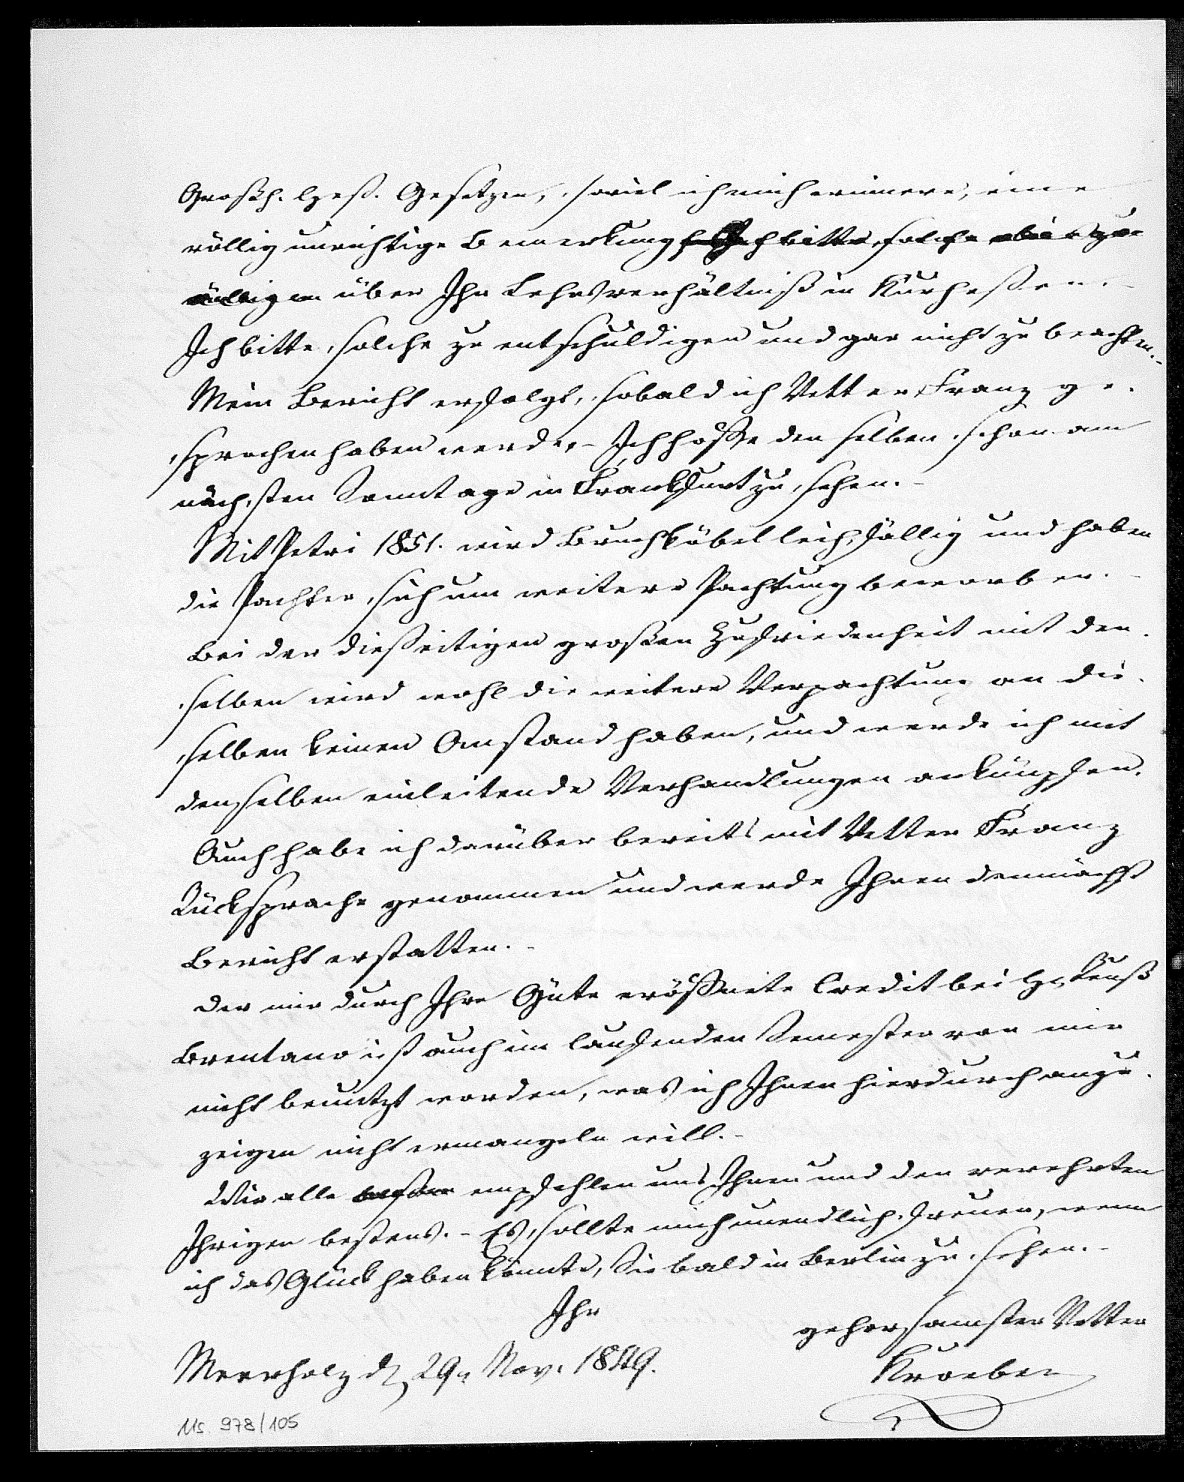 Großh. Heß. Gesetzen, soviel ich mich erinnere, eine
völlig unrichtige Bemerkung Ich bitte, solche
über Ihr Lehnsverhältniß in Kurheßen.
Ich bitte, solche zu entschuldigen und gar nicht zu beachten.-
Mein Bericht erfolgt, sobald ich Vetter Franz ge-
sprochen haben werde.- Ich hoffe denselben schon am
nächsten Sonntage in Frankfurt zu sehen.-
Mit Petri 1851. wird Bruchköbel leihfällig und haben
die Pachter sich um weitere Pachtung beworben.-
Bei der dießeitigen großen Zufriedenheit mit den-
selben wird wohl die weitere Verpachtung an die-
selben keinen Anstand haben, und werde ich mit
denselben einleitende Verhandlungen anknüpfen.
Auch habe ich darüber bereits mit Vetter Franz
Rücksprache genommen und werde Ihnen demnächst
Bericht erstatten.-
Der mir durch Ihre Güte eröffnete Credit bei
Brentano ist auch im laufenden Semester von mir
nicht benutzt worden, was ich Ihnen hierdurch anzu-
zeigen nicht ermangeln will.-
Wir alle empfehlen uns Ihnen und den verehrten
Ihrigen bestens.- Es sollte mich unendlich freuen, wenn
ich das Glück haben könnte, Sie bald in Berlin zu sehen.-
Ihr
gehorsamster Vetter
Meerholz d 29n Nov. 1849.
Kroeber
Ms. 978/105